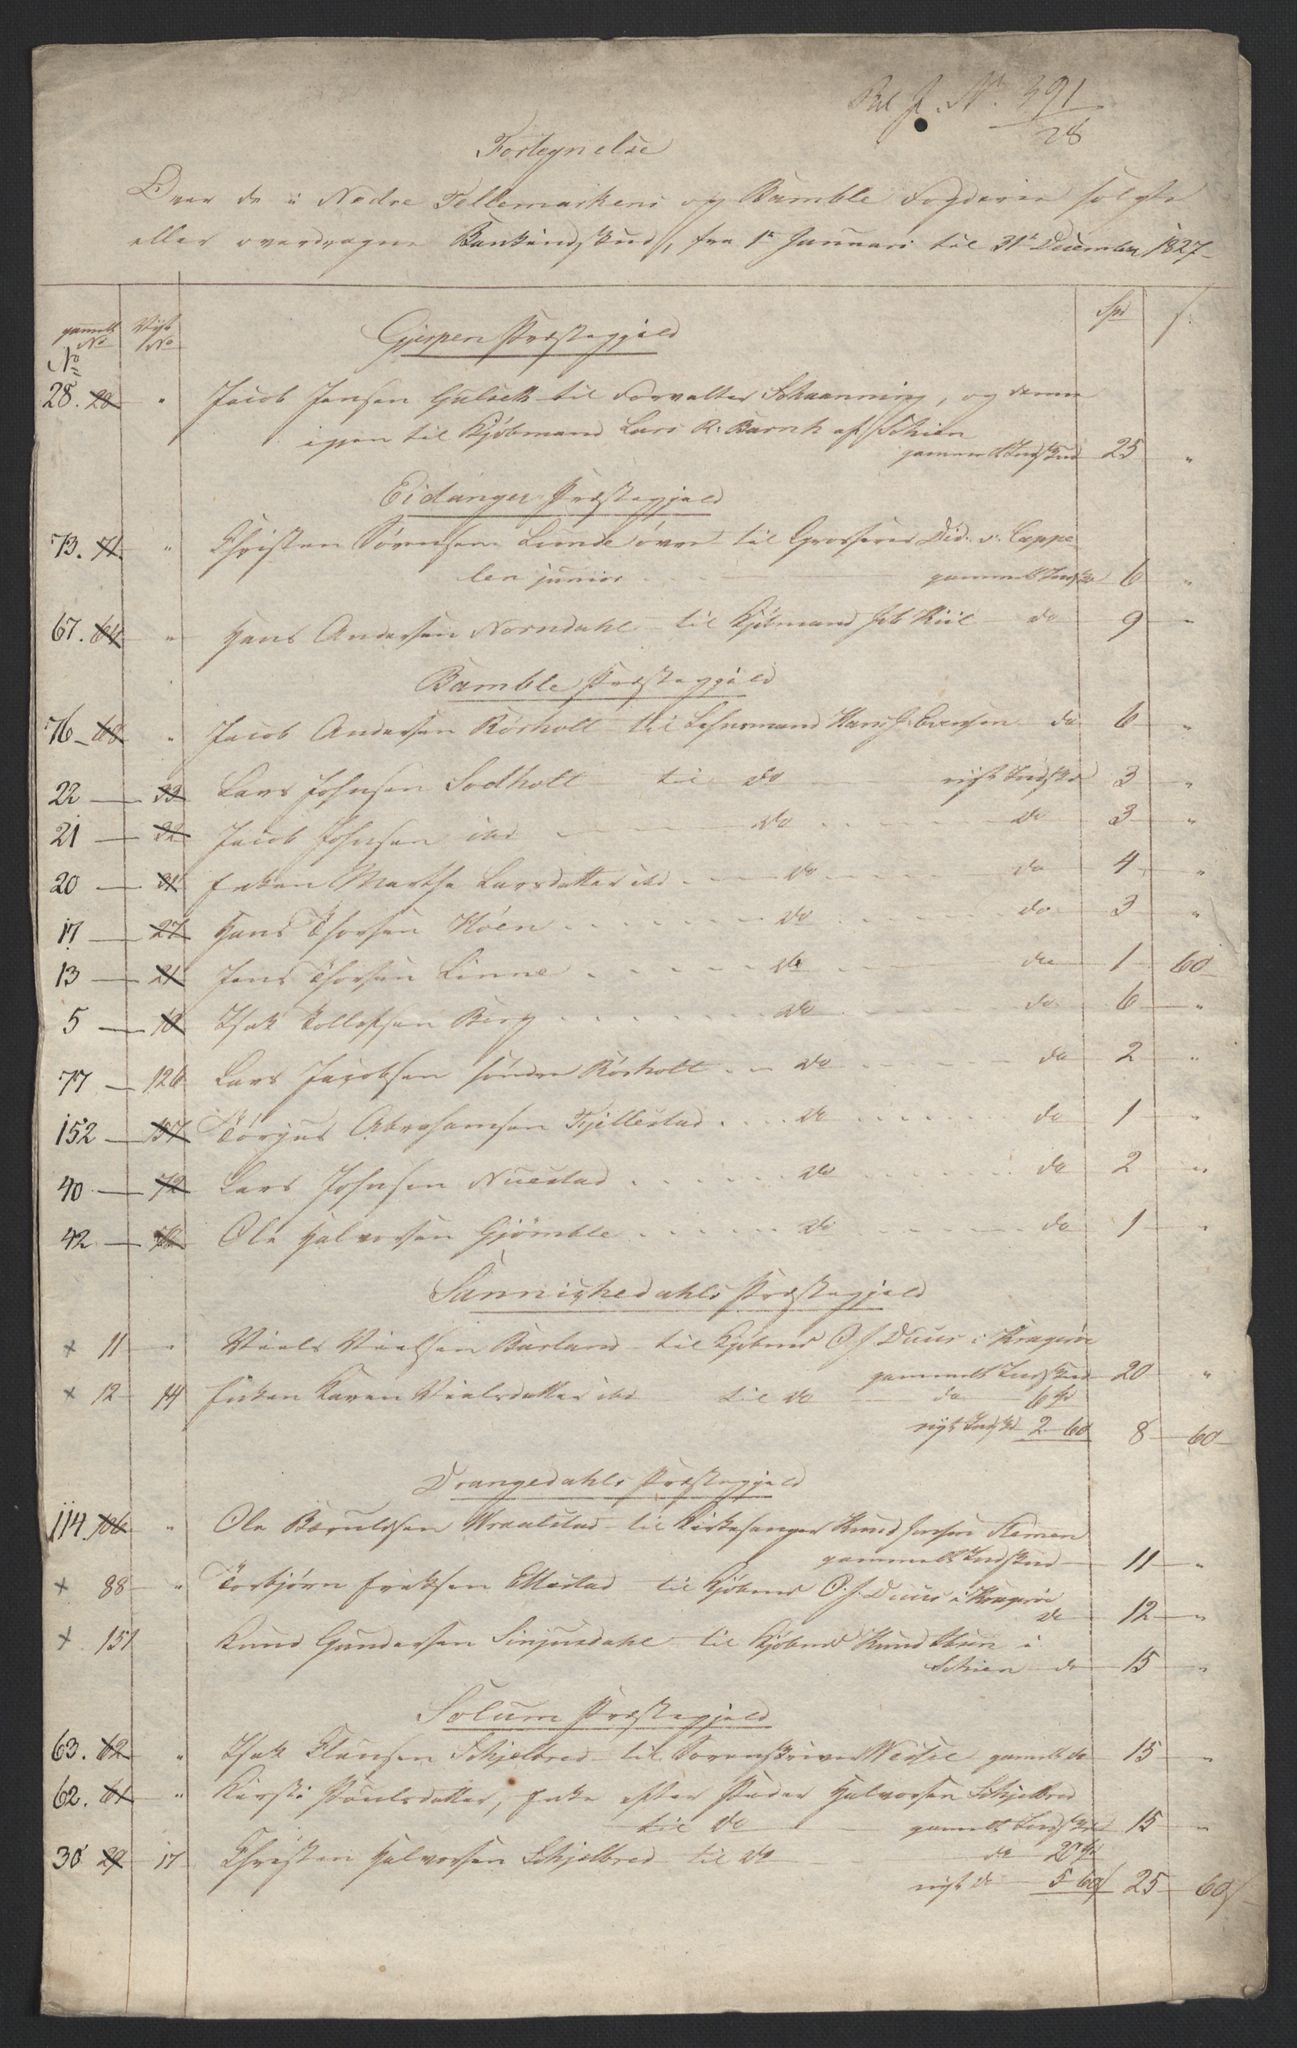 J. No. 391
28
Fortegnelse
Over de i Nedre Tellemarkens og Bamble Fogderie solgte
eller overdragne Bankindskud, fra 1te Januari til 31te December 1827
gammelt No Nyt No Spd ſ.
No
Gjerpen Præstegjeld
28. 28 " Jacob Jensen Gulseth til Forvalter Schaanning, og denne
igjen til Kjøbmand Lars R. af Schien
gammelt Indskud 25 "
Eidanger Præstegjeld
73. 71 " Christen Sørensen Lunde øvre til Grosserer Did. v. Cappe
len junior gammelt Indskd 6 "
67. 64 " Hans Andersen Norndahl til Kjøbmand Kiil do 9 "
Bamble Præstegjeld
76 68 " Jacob Andersen Rørholt til Lehnsmand Hans J. Evensen do 6 "
22 33 Lars Johnsen Sodholt til do nyt Indskd 3 "
21 32 Jacob Johnsen ibd do do 3 "
20 31 Enken Marthe Larsdatter ibd do do 4 "
17 27 Hans Thorsen Høen do do 3 "
13 21 Jens Thorsen Linne do do 1 60
5 10 Isak Tollefsen Berg do do 6 "
77 126 Lars Jacobsen søndre Rørholt do do 2 "
152 157 Tørjus Abrahamsen Fjellestad do do 1 "
40 72 Lars Johnsen Nuestad do do 2 "
42 Ole Halvorsen Gjømble do do 1 "
Sannishedahls Præstegjeld
x 11 " Niels Nielsen Barland til Kjøbmd O. J. Duus i Kragerøe
gammelt Indskud 20 "
x 12 14 Enken Karen Nielsdatter ibd til do do 6
nyt Indskd 2 60 8 60
Drangedahls Præstegjeld
114. 106 " Ole Bæruldsen til Kirkesanger Knud Jensen
gammelt Indskud 11 "
x 88 " Torbjørn Eriksen Ettestad til Kjøbmd O. J. Duus i Kragerøe
do 12 "
x 151 Knud Gundersen Sinjusdahl til Kjøbmd Knud i
Schien do 15 "
Solum Præstegjeld
63. 62 " Isak Clausen Schjelbred til Sorenskriver Wessel gamelt do 15 "
62. 61 " Kirsti Poulsdatter, Enke efter Peder Halvorsen Schjelbred
til do gamelt Indskud 15 "
30 29 17 Christen Halvorsen Schjelbred til do do 20
nyt do 5 60 25 60